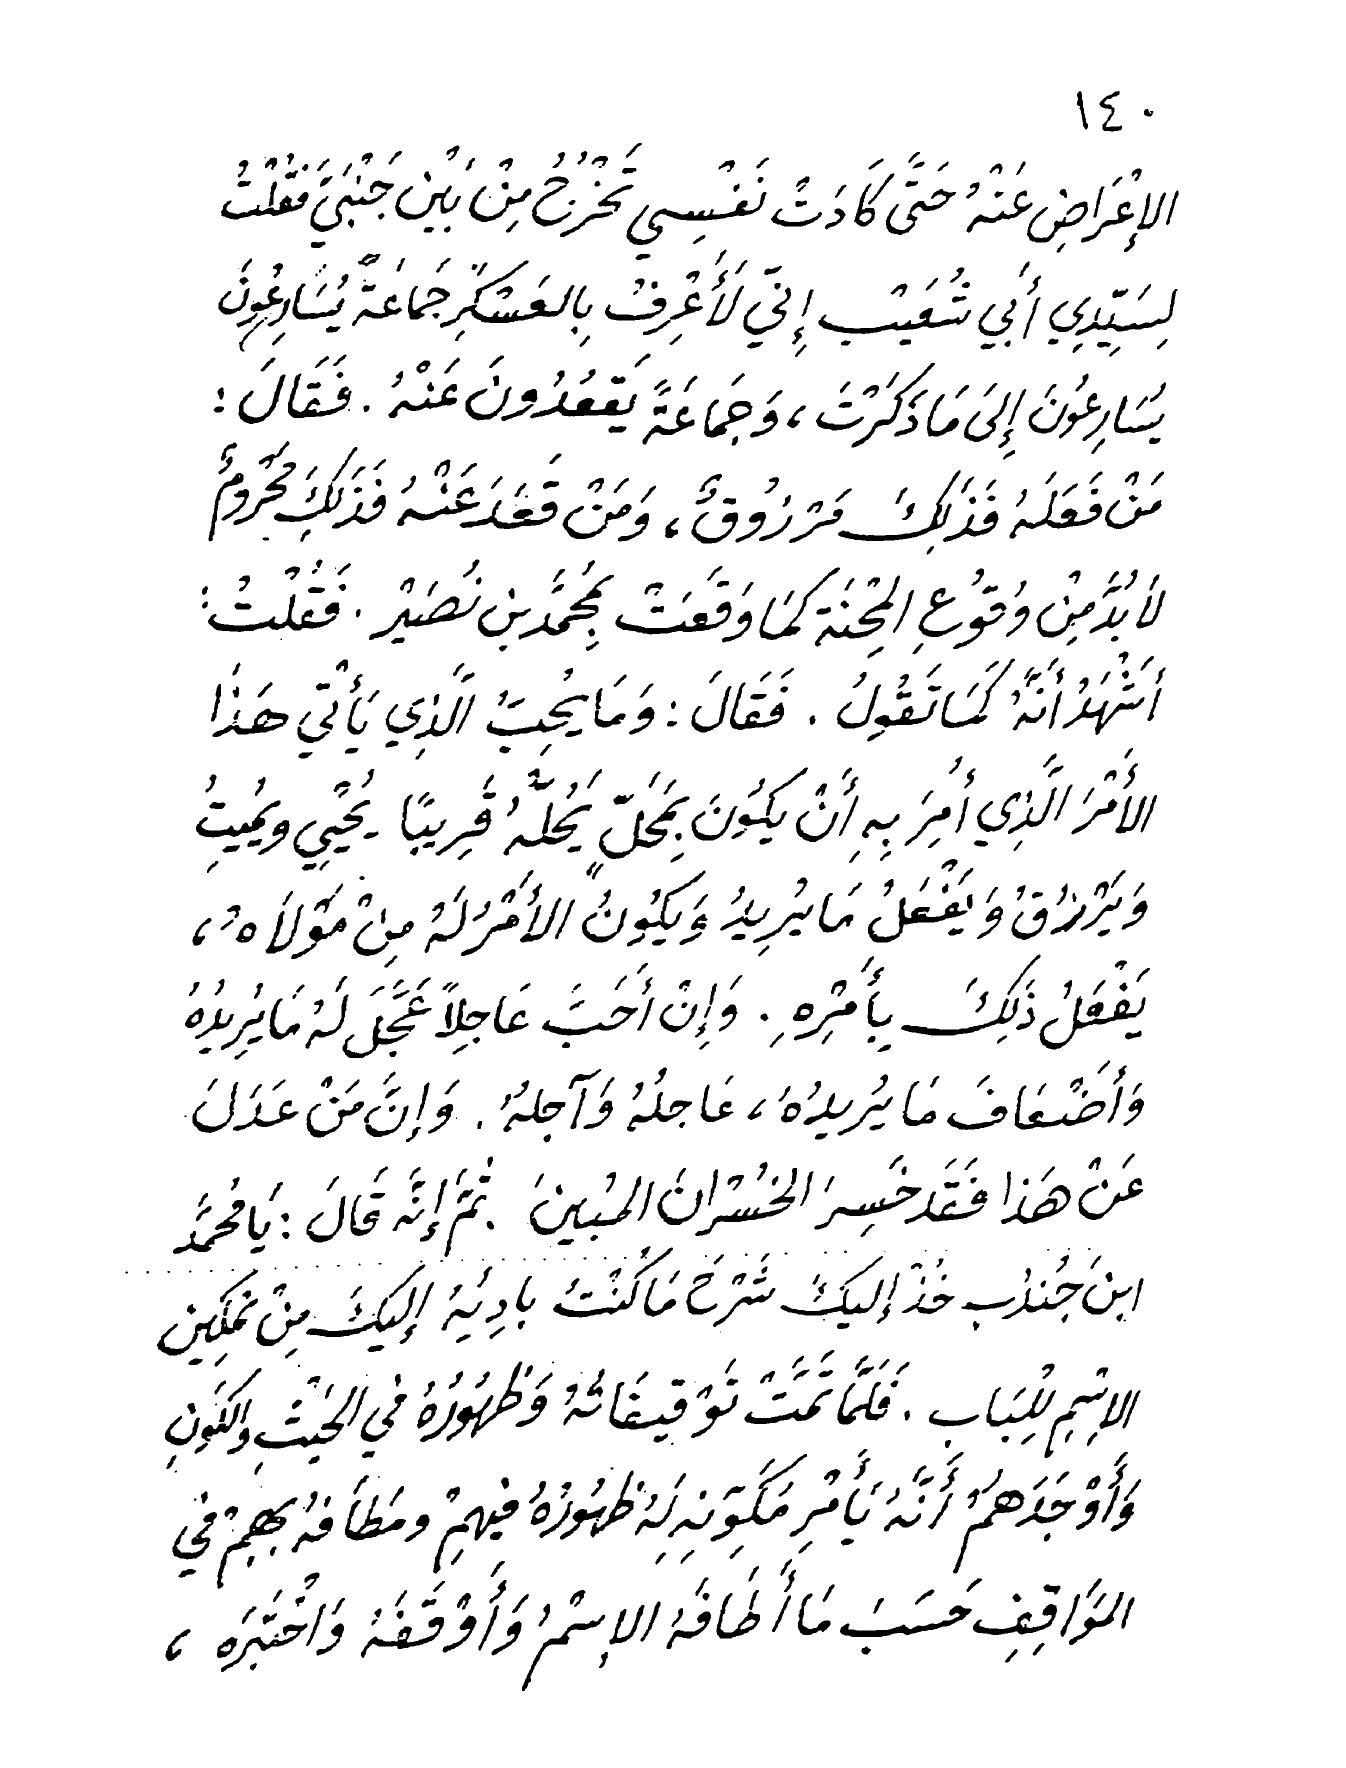 ١٤٠
الإِعْرَاضِ عَنْهُ حَتَّى كَادَتْ نَفْسِي تَخْرُجُ مِنْ بَيْنِ جَنْبَيَّ فَقُلْتُ
لِسَيِّدِي أَبِي شُعَيْبٍ إِنِّي لَأَعْرِفُ بِالعَسْكَرِ جَمَاعَةً يُسَارِعُونَ
يُسَارِعُونَ إِلَى مَا ذَكَرْتَ ، وَجَمَاعَةً يَقْعُدُونَ عَنْهُ . فَقَالَ :
مَنْ فَعَلَهُ فَذَلِكَ مَرْزُوقٌ ، وَمَنْ قَعَدَ عَنْهُ فَذَلِكَ مَحْرُومٌ
لَا بُدَّ مِنْ وُقُوعِ المِحْنَةِ كَمَا وَقَعَتْ بِمُحَمَّدِ بنِ نُصَيْرٍ . فَقُلْتُ :
أَشْهَدُ أَنَّهُ كَمَا تَقُولُ . فَقَالَ : وَمَا يُحِبُّ الَّذِي يَأْتِي هَذَا
الأَمْرَ الَّذِي أُمِرَ بِهِ أَنْ يَكُونَ بِمَحَلٍّ يَحُلُّهُ قَرِيبًا يُحْيِي ويُمِيتُ
وَيَرْزُقُ وَيَفْعَلُ مَا يُرِيدُ وَيَكُونُ الأَمْرُ لَهُ مِنْ مَوْلَاهُ ،
يَفْعَلُ ذَلِكَ بِأَمْرِهِ . وَإِنْ أَحَبَّ عَاجِلاً عَجَّلَ لَهُ مَا يُرِيدُهُ
وَأَضْعَافَ مَا يُرِيدُهُ ، عَاجِلُهُ وَآجِلُهُ . وَإِنَّ مَنْ عَدَلَ
عَنْ هَذَا فَقَد خَسِرَ الخُسْرَانَ المُبِينَ . ثُمَّ إِنَّه قَالَ : يَا مُحَمَّدَ
ابنَ جُندُبٍ خُذْ إِليكَ شَرْحَ مَا كُنْتُ بادِيَهُ إِليكَ مِنْ تَمكِين
الاِسْمِ لِلْبَابِ . فَلَمَّا تَمَّتْ تَوْقِيفَاتُهُ وَظُهُورُهُ في الحَيْثِ والكَوْنِ
وَأَوْجَدَهُمْ أَنَّهُ يَأْمْرِ مُكَوِّنِهِ لَهُ ظُهُورُهُ فِيهِمْ ومَطَافُهُ بِهِمْ في
المَوَاقِفِ حَسَبَ مَا أَطَافَهُ الاِسْمُ وَأَوْقَفَهُ وَاخْتَبَرَه ،